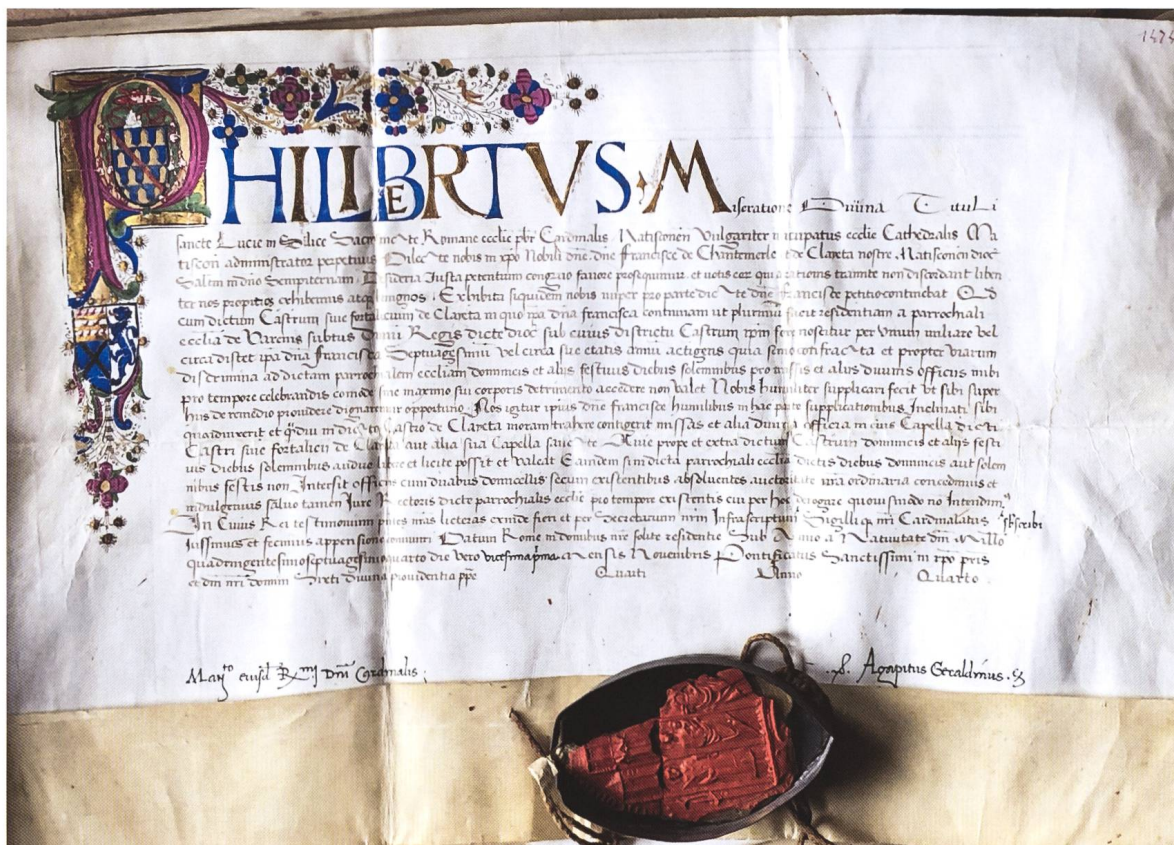 1474
PHILIBERTVS · Miseratione Diuina Tituli
sancte Lucie in Silice Sacro[...]te Romane ecclie pbr Cardinalis, Matisconen Vulgariter nuncupatus ecclie Cathedralis Ma
tisconen administrator perpetuus Dilecte nobis in xpo Nobili dne dne Francisce de Chantemerle de Clareta nostre Matisconen dioc
Salutem in dno Sempiternam, Desideria Iusta petentium congruo fauore prosequimur et uotis eor que a rationis tramite non discordant liben
ter nos propitios exhibemus atque benignos. Exhibita siquidem nobis nuper pro parte dicte dne francisce petitio continebat Qd
cum dictum Castrum siue fortalicium de Clareta in quo ipa dna francisca continuam ut plurimum facit residentiam a parrochiali
ecclia de Varenis subtus Regis dicte dioc sub cuius districtu Castrum ipm fore noscitur per Vnum miliare vel
circa distet ipa dna francisca Septuagesimum vel circa sue etatis annum actigens quia senio confracta et propter viarum
discrimina ad dictam parrochialem eccliam dominicis et aliis festiuis diebus solemnibus pro missis et aliis diuinis officiis inibi
pro tempore celebrandis comode sine maximo sui corporis detrimento accedere non valet Nobis humiliter supplicari fecit Vt sibi super
hiis de remedio prouidere dignaremur opportuno. Nos igitur ipius dne francisce humilibus in hac parte supplicationibus Inclinati sibi
quaaduixerit et qdiu in dicto Castro de Clareta moram trahere contigerit missas et alia diuina officia in eius Capella dicti
Castri siue fortalicii de Clareta aut alia sua Capella prope et extra dictum Castrum dominicis et aliis festi
uis diebus solemnibus audire libere et licite possit et valeat Eandem si in dicta parrochiali ecclia dictis diebus dominicis aut solem
nibus festis non Intersit officiis cum duabus domicellis secum existentibus absoluentes auctoritate nra ordinaria concedimus et
indulgemus saluo tamen Iure Rectoris dicte parrochialis ecclie pro tempore existentis cui per hoc derogare quouismodo no Intendim9
In Cuius Rei testimonium pntes nras licteras exinde fieri et per Secretarium nrm Infrascriptum subscribi Sigilliqz nri Cardinalatus
Iussimus et fecimus appensione communiri Datum Rome in domibus nre solite residentie Sub Anno a Natiuitate dni Millo
quadringentesimoseptuagesimoquarto die vero vicesimaprima mensis Nouembris Pontificatus Sanctissimi in xpo pris
et dni nri domini Sixti diuina prouidentia ppe Quarti Anno Quarto
Manto eiusd Rmi Dni Cardinalis;
Agapitus Geraldinus